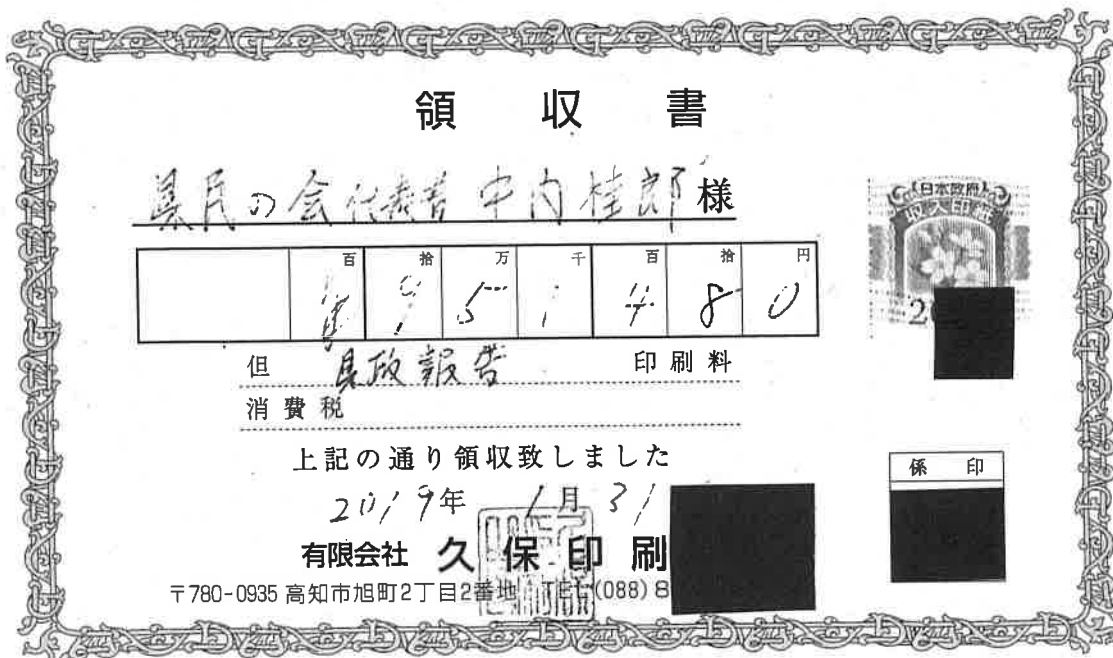 領収書
県民の会代表者 中内桂郎 様
百 拾 万 千 百 拾 円
¥ 9 5 1 4 8 0
但 県政報告 印刷料
消費税
上記の通り領収致しました
2019年 1月 31
有限会社 久保印刷
〒780-0935 高知市旭町2丁目2番地 TEL (088) 8
日本政府
収入印紙
2
係印